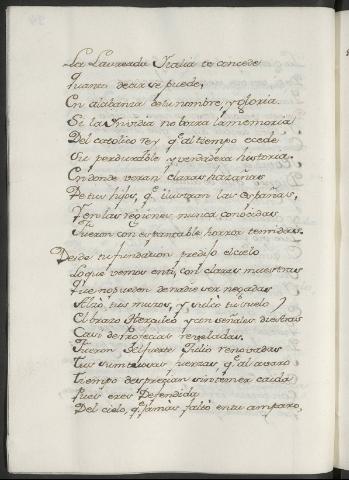 La Laureada Italia te concede
Quanto decir se puede,
En alabanza de tu nombre, y gloria.
Si la Invidia no borra la memoria
Del catolico rey q.e al tiempo ecede
Su perdurable y verdadera historia.
En donde veran claras hazañas
De tus hijos, q.e ilustran las españas,
Y en las regiones nunca conocidas
Fueron con espantable horror temidas.
Desde tu fundacion predijo el cielo
Lo que vemos en ti, con claras muestras
Que no pueden de nadie ser negadas
Alzó tus muros, y
El brazo Herculeo y con señales diestras
Casi de Profecias reveladas.
Fueron del fuerte Julio renovadas
Tus sumtuosas fuerzas q.e al avaro
Tiempo desprecian sin temer caida
Pues eres Defendida
Del cielo, q.e jamas faltó en tu amparo,